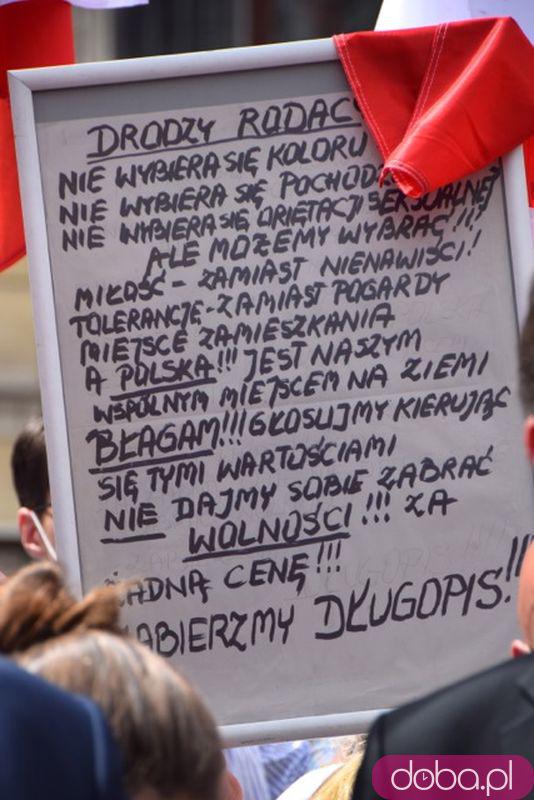 DRODZY RODAC
NIE WYBIERA SIĘ KOLORU
NIE WYBIERA SIĘ POCHODZE
NIE WYBIERA SIĘ ORIĘTACJI SEKSUALNEJ
ALE MOŻEMY WYBRAĆ!!!
MIŁOŚĆ - ZAMIAST NIENAWIŚCI!
TOLERANCJE - ZAMIAST POGARDY
MIEJSCE ZAMIESZKANIA
A POLSKA!!! JEST NASZYM
WSPÓLNYM MIEJSCEM NA ZIEMI
BŁAGAM!!! GŁOSUJMY KIERUJĄC
SIĘ TYMI WARTOŚCIAMI
NIE DAJMY SOBIE ZABRAĆ
WOLNOŚCI!!! ZA
ŻADNĄ CENĘ!!!
ZABIERZMY DŁUGOPIS!!!
doba.pl